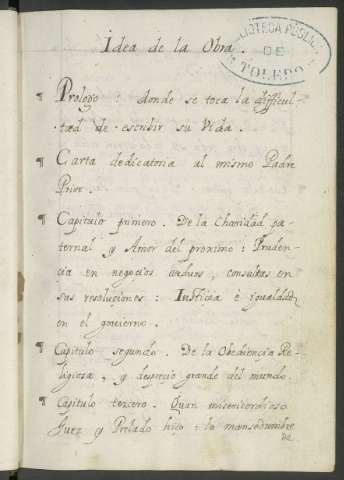 Idea de la Obra.
BIBLIOTECA PÚBLICA
DE
TOLEDO
¶ Prologo: donde se toca la difficul-
tad de escribir su Vida.
¶ Carta dedicatoria al mismo Padre
Prior.
¶ Capitulo primero. De la Charidad pa-
ternal y Amor del proximo: Pruden-
çia en negoçios arduos, consultas en
sus resoluçiones: Iustiçia è igualdad
en el gouierno.
¶ Capitulo segundo. De la Obediençia Re-
ligiosa, y despreçio grande del mundo.
¶ Capitulo tercero. Quan misericordioso
Juez y Prelado hiço: la mansedumbre
de